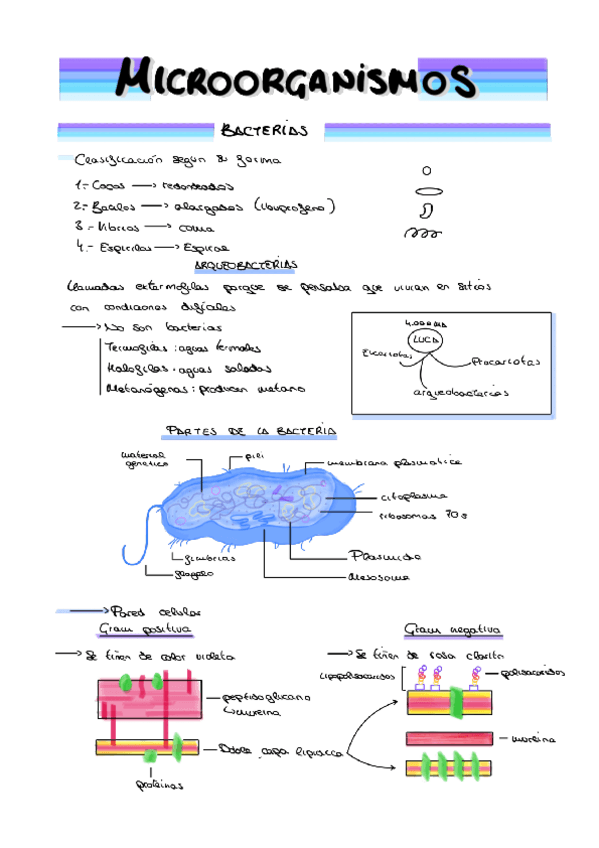 MICROORGANISMOS
BACTERIAS
Clasificación según su forma
1.- Cocos → redondeados
2.- Bacilos → alargados (ibuprofeno)
3.- Vibrios → coma
4.- Espirilos → Espiral
ARQUEOBACTERIAS
llamadas extermofilas porque se pensaba que vivian en sitios
con condiciones dificiles
→ No son bacterias
Termofilas: aguas termales
Halofilas: aguas saladas
Metanógenas: producen metano
4.000 MA
LUCA
Eucariotas
Procariotas
arqueobacterias
PARTES DE LA BACTERIA
material genetico
pili
membrana plasmatica
citoplasma
ribosomas 70s
Plasmido
Mesosoma
fimbrias
flagelo
→ Pared celular
Gram positiva
Gram negativa
→ Se tiñen de color violeta
→ Se tiñen de rosa clarito
lipopolisacaridos
polisacaridos
peptidoglicano
↳ mureina
mureina
Doble capa lipidica
proteinas